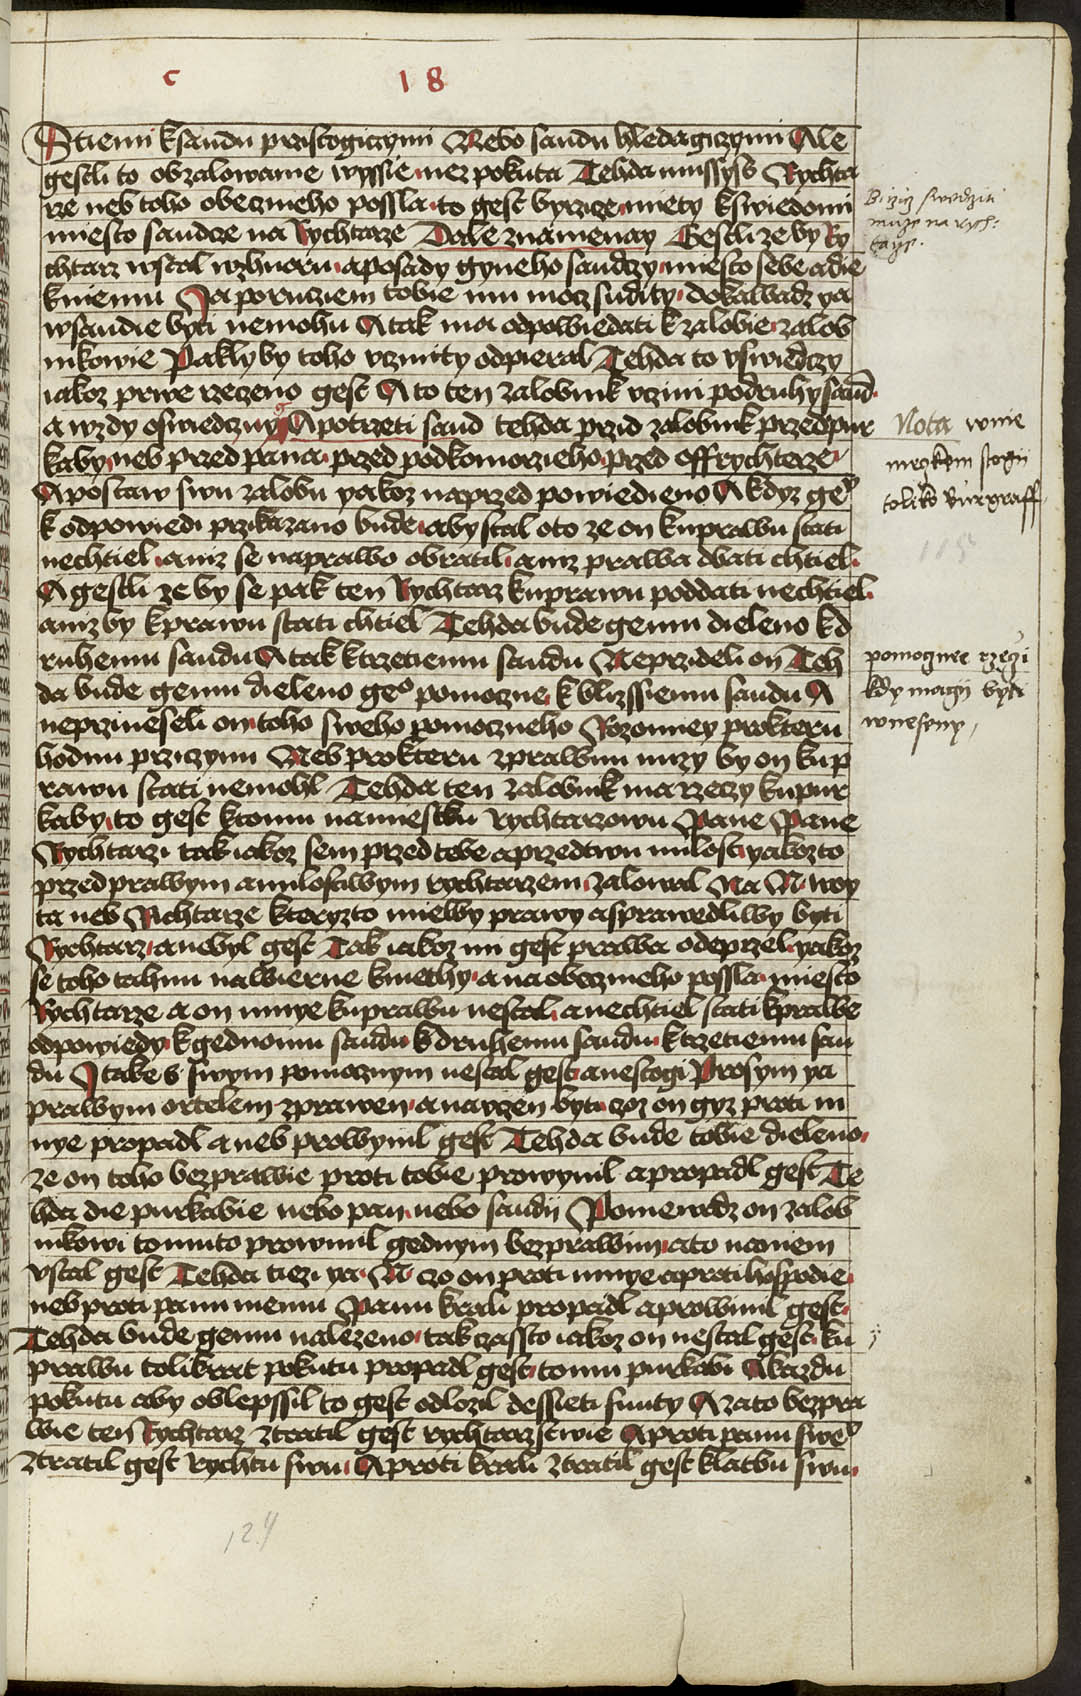 c 18
Stiemi ksaudu przistogiczymi Nebo saudu hledagiczymi Ale
gestli to obzalowanie wyssie nez pokuta Tehda mussyss Rychta
rze neb toho obeczneho possla to gest byrzicze miety kswiedomi
miesto saudcze na Rychtarze Dale znamenay Gestli ze by Ry
chtarz wstal wzhuoru a posady gyneho saudczy miesto sebe a die
kniemu Ja poruziem tobie mu mocz sudity dokawadz ya
wsaudie byti nemohu A tak ma odpowiedati k zalobie zalob
nikowie Paklyby toho vczinity odpieral Tehda to vswiedczy
iakoz prwe rzeczeno gest A to ten zalobnik vczini podruhy saud
a wzdy oswiedczuge A potrzeti saud tehda przid zalobnik przed pur
kaby neb przed pana przed podkomorzieho przed offrychterze
A postaw swu zalobu yakoz naprzed powiedieno A kdyz geho
k odpowiedi przikazano bude aby stal oto ze on kuprawu stati
nechtiel aniz se naprawo obratil aniz prawa dbati chtiel
A gestli ze by se pak ten Rychtarz kuprawu poddati nechtiel
aniz by kprawu stati chtiel Tehda bude gemu dieleno kd
ruhemu saudu A tak ktrzetiemu saudu Neprzideli on Teh
da bude gemu dieleno geo pomoczne k blizssiemu saudu A
neprzineseli on toho sweho pomoczneho Rozomney prokteru
hodnu prziczynu Neb prokteru zprawnu nuzy by on kup
rawu stati nemohl Tehda ten zalobnik ma rzeczy kupur
kaby to gest ktomu namiestku rychtarzowu Pane Pane
Rychtarzi tak iakoz sem przed tebe a przed twu milost yakozto
przed prawym a milostiwym rychtarzem zalowal Na N woy
ta neb Richtarze kteryzto mielby prawy a sprawedliwy byti
Rychtarz a nebyl gest Tak iakoz mi gest prawa odeprzel yakoz
se toho tahnu na wierne kmethy a na obeczneho possla miesto
Rychtarze a on mnye kuprawu nestal a nechtiel stati kprawe
odpowiedy kgednomu saudu kdruhemu saudu ktrzetiemu sau
du J take s swym pomocznym nestal gest a nestogi Prosym ya
prawym ortelem zprawen a nauczen byti czoz on gyz proti m
nye propadl a neb prowynil gest Tehda bude tobie dieleno
ze on toho bezprawie proti tobie prowynil a propadl gest Te
hda die purkabie nebo pan nebo saudij Ponewadz on zalob
nikowi tomuto prowinil gednym bezprawim a to naniem
vstal gest Tehda tiezi ya N czo on proti mnye a proti hospodie
neb proti panu memu Panu krali propadl a prowinil gest
Tehda bude gemu nalezeno tak czasto iakoz on nestal gest ku
prawu tolikrat pokutu propadl gest tomu purkabi A kazdu
pokutu aby oblepssil to gest odlozil dessieti funty A za to bezpra
wie ten Rychtarz ztratil gest rychtarzstwie A proti panu sweo
ztratil gest rychtu swu A proti krali ztratil gest klatbu swu
Nota wnie
toliko Purgraff
pomocznee rzeczi
kdy magij byti
124